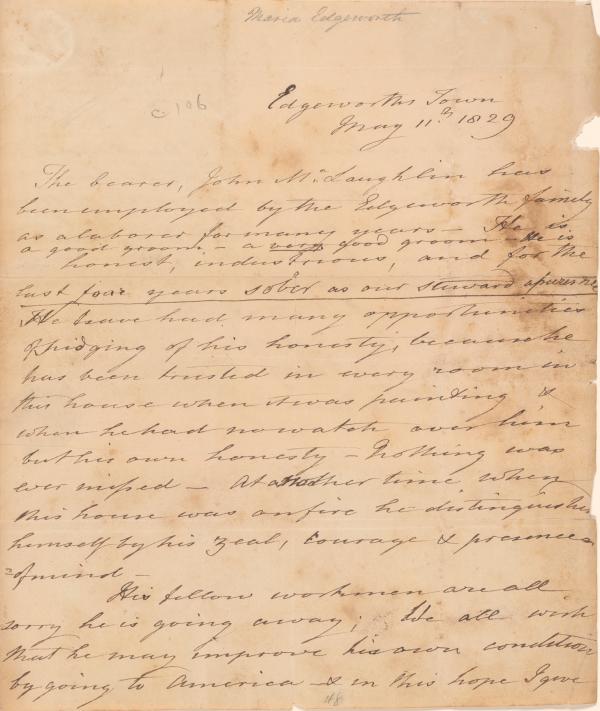 Maria Edgeworth
c 106
Edgeworths Town
May 11th 1829
The bearer, John McLaughlin has
been employed by the Edgeworth family
as a laborer for many years — He is
a good groom — a very good groom — He is
honest, industrious, and for the
last four years sober as our steward assures me
We have had many opportunities
of judging of his honesty, because he
has been trusted in every room in
this house when it was painting &
when he had no watch over him
but his own honesty — Nothing was
ever missed — At another time when
this house was on fire he distinguished
himself by his zeal, courage & presence
of mind —
His fellow workmen are all
sorry he is going away; We all wish
that he may improve his own condition
by going to America — & in this hope I give
48